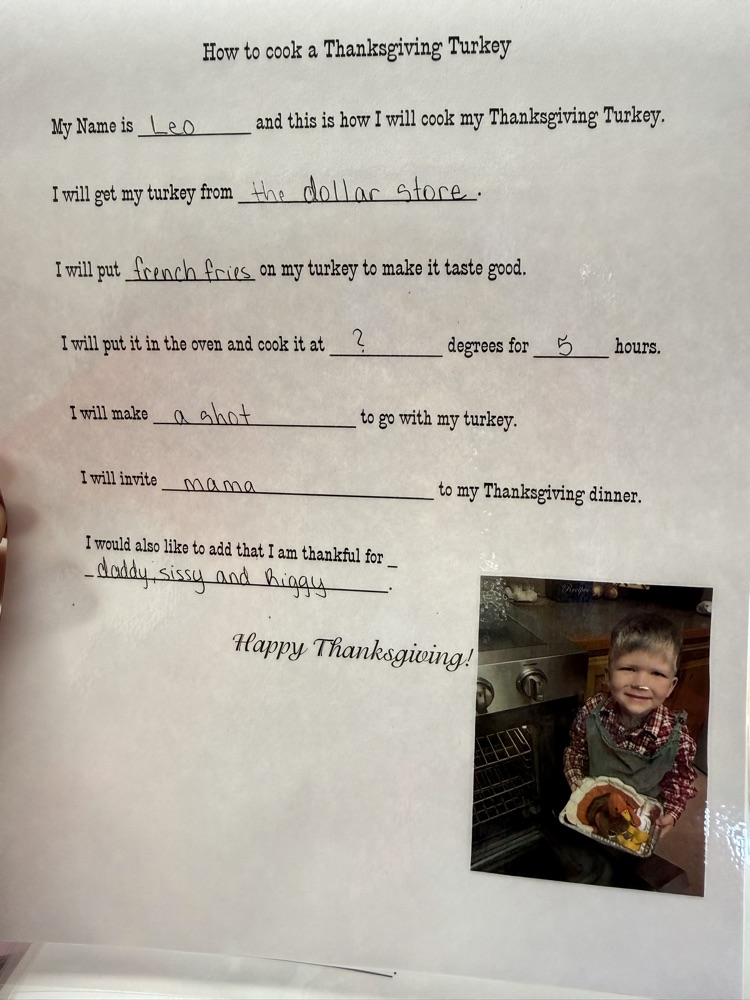 How to cook a Thanksgiving Turkey
My Name is Leo and this is how I will cook my Thanksgiving Turkey.
I will get my turkey from the dollar store.
I will put french fries on my turkey to make it taste good.
I will put it in the oven and cook it at ? degrees for 5 hours.
I will make a shot to go with my turkey.
I will invite mama to my Thanksgiving dinner.
I would also like to add that I am thankful for
daddy, sissy and Riggy.
Happy Thanksgiving!
Recipes